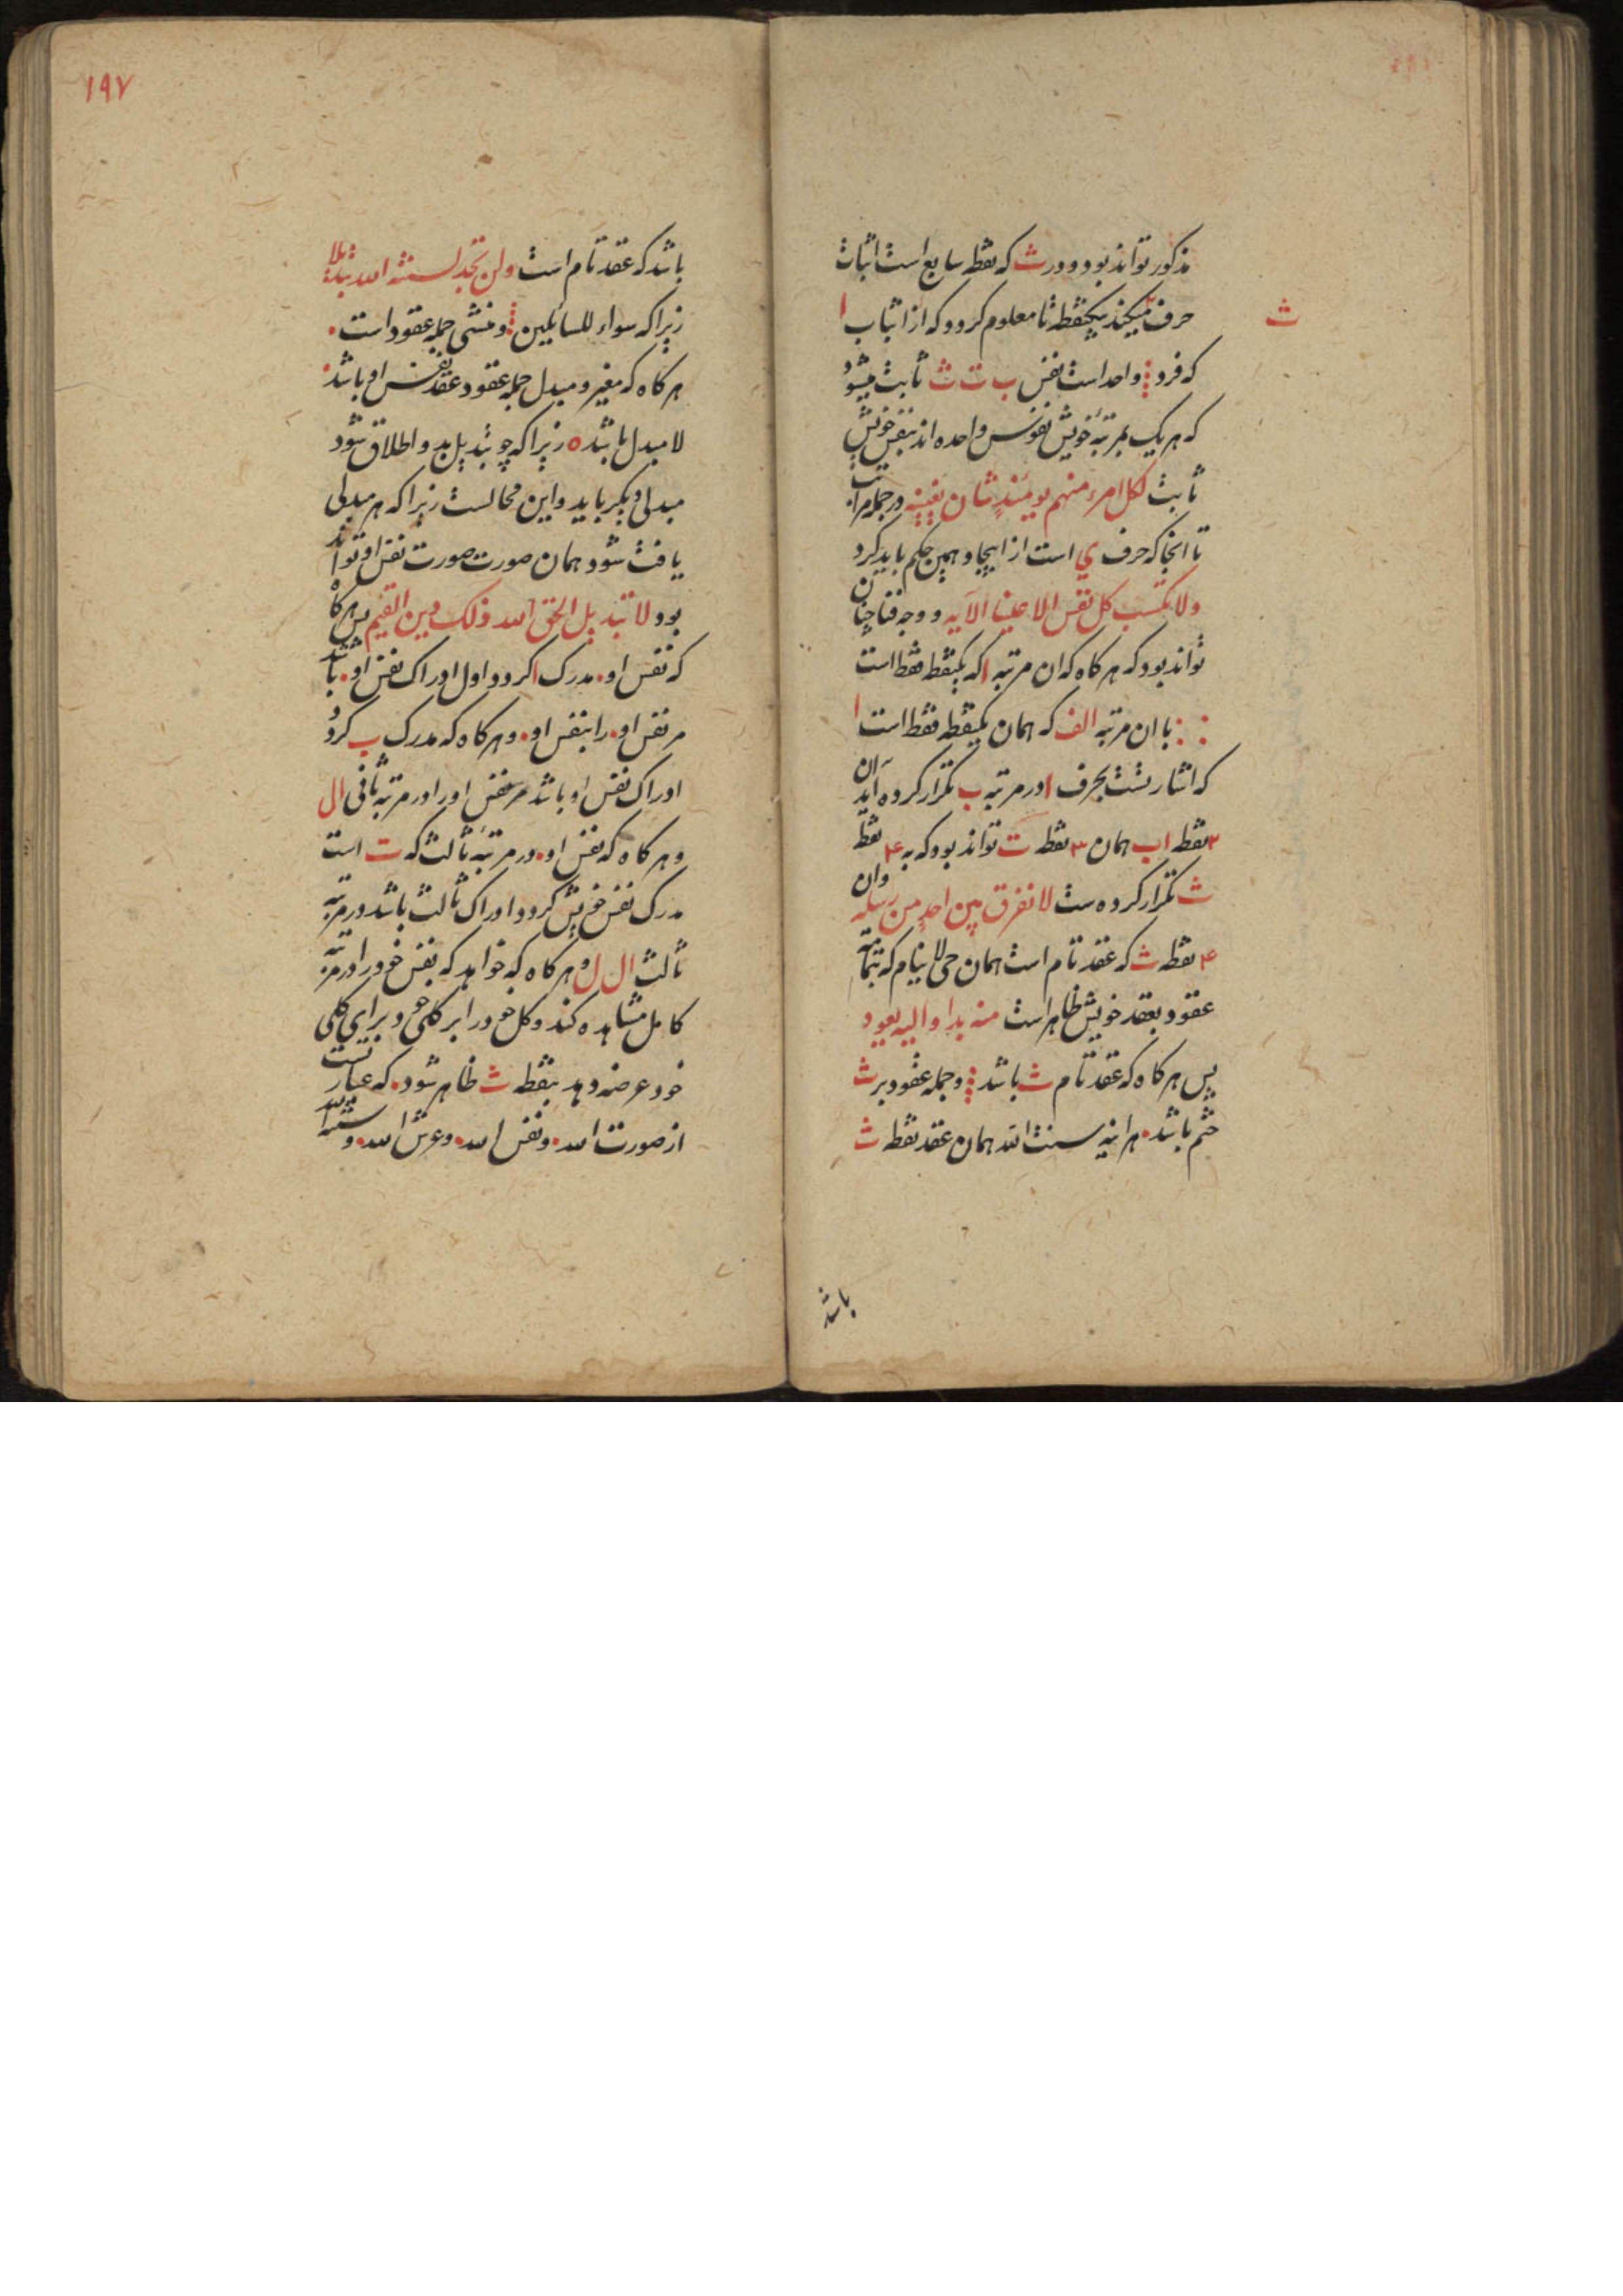 مذکور تواند بود و در ث که نقطه سابع است اثبات
ث
حرف میکند بیکنقطه تا معلوم کردد که از اثبات ا
که فرد و واحد است نفس ب ت ث ثابت میشود
که هر یک بمرتبه خویش نفوس واحده اند بنفس خویش
ثابت لکل امرء منهم یومئذ شان یغنیه در جمله مراتب
تا انجا که حرف ي است از ایجاد همین حکم باید کرد
ولا تکسب کل نفس الا علیها الآیه و وجه فنا چنان
تواند بود که هر کاه که ان مرتبه ا که یکنقطه فقط است
با ان مرتبه الف که همان یکنقطه فقط است ا
که اشارتست بحرف ا در مرتبه ب تکرار کرده آید ان
۲ نقطه اب همان ۳ نقطه ت تواند بود که به ۴ نقطه
ث تکرار کرده ست لا نفرق بین احد من رسله وان
۴ نقطه ث که عقد تام است همان حی لا ینام که بتمامه
عقود بعقد خویش ظاهر است منه بدا والیه یعود
پس هر کاه که عقد تام ث باشد و جمله عقود بر ث
ختم باشد هراینه سنت الله همان عقد نقطه ث
باشد
۱۹۷
باشد که عقد تام است ولن تجد لسنة الله تبدیلا
زیرا که سواء للسائلین و منشی جمله عقود است
هر کاه که مغیر و مبدل جمله عقود عقد نفس او باشد
لا مبدل باشد زیرا که چو تبدیل بدو اطلاق شود
مبدلی دیکر باید و این محالست زیرا که هر مبدلی
یافت شود همان صورت صورت نفس او تواند
بود لا تبدیل لخلق الله ذلک دین القیم پس هر کاه
که نفس او مدرک ا کردد اول ادراک نفس او باشد
مر نفس او را بنفس او و هر کاه که مدرک ب کردد
ادراک نفس او باشد مر نفس او را در مرتبه ثانی ال
و هر کاه که نفس او در مرتبه ثالث که ت است
مدرک نفس خویش کردد ادراک ثالث باشد در مرتبه
ثالث ال ل و هر کاه که خواهد که نفس خود را در مرتبه
کامل مشاهده کند و کل خود را بر کلی خود برای کلی
خود عرضه دهد بنقطه ث ظاهر شود که عبارتست
از صورت الله و نفس الله و عرش الله و سنة الله